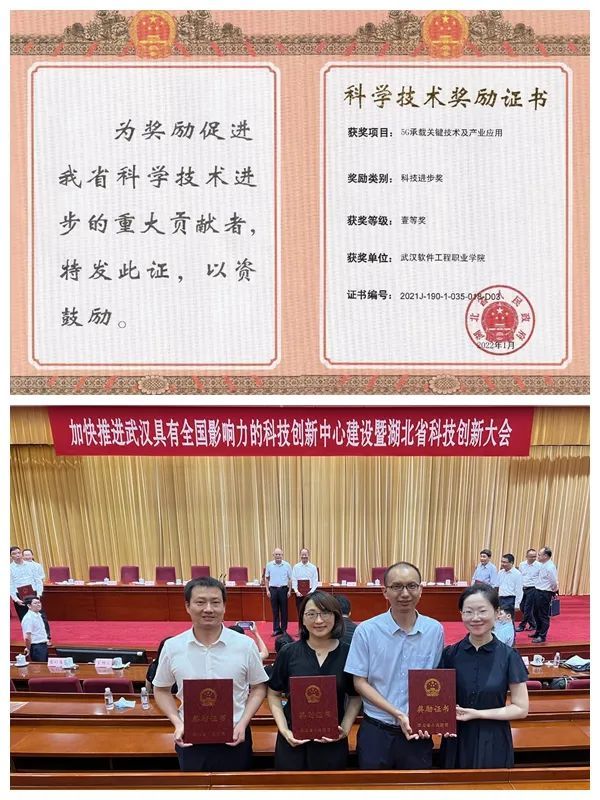 为奖励促进
我省科学技术进
步的重大贡献者,
特发此证，以资
鼓励。
科学技术奖励证书
获奖项目：5G承载关键技术及产业应用
奖励类别：科技进步奖
获奖等级：壹等奖
获奖单位：武汉软件工程职业学院
证书编号：2021J-190-1-035-018-D03
湖北省人民政府
2022年1月
加快推进武汉具有全国影响力的科技创新中心建设暨湖北省科技创新大会
奖励证书
奖励证书
奖励证书